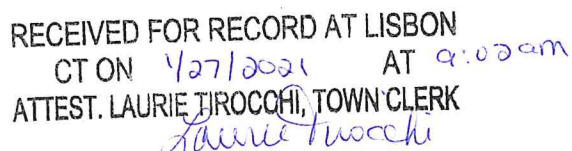 RECEIVED FOR RECORD AT LISBON
CT ON 1/27/2021 AT 9:02am
ATTEST. LAURIE TIROCCHI, TOWN CLERK
Laurie Tirocchi